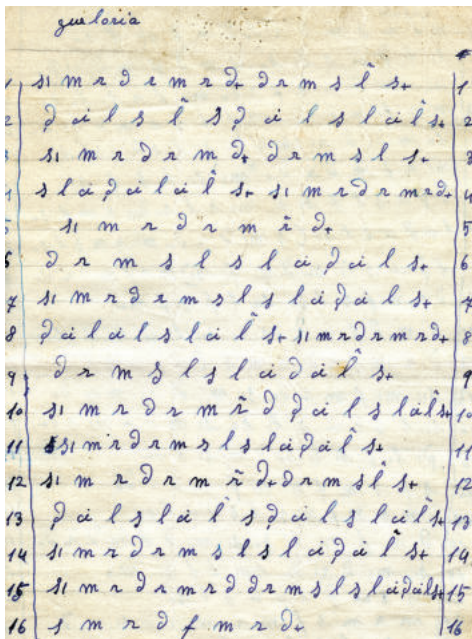 gueloria
s1 m r d r m r d+ d r m s l̂ s+ 1
2 d ci l s l̂ s d ci l s l ci l̂ s+ 2
s1 m r d r m d+ d r m s l s+ 3
s l ci d ci l ci l̂ s+ s1 m r d r m r d+ 4
s1 m r d r m r̃ d+ 5
6 d r m s l s l ci d ci l s+ 6
7 s1 m r d r m s l s l ci d ci l s+ 7
8 d ci l ci l s l ci l̂ s+ s1 m r d r m r d+ 8
9 d r m s l s l ci d ci l̂ s+ 9
10 s1 m r d r m r̃ d d ci l s l ci l̂ s+ 10
11 s1 m r d r m s l s l ci d ci l̂ s+ 11
12 s1 m r d r m r̃ d+ d r m s l̂ s+ 12
13 d ci l s l ci l̂ s d ci l s l ci l̂ s+ 13
14 s1 m r d r m s l s l ci d ci l̂ s+ 14
15 s1 m r d r m r d d r m s l s l ci d ci l s+ 15
16 s m r d f m r d+ 16